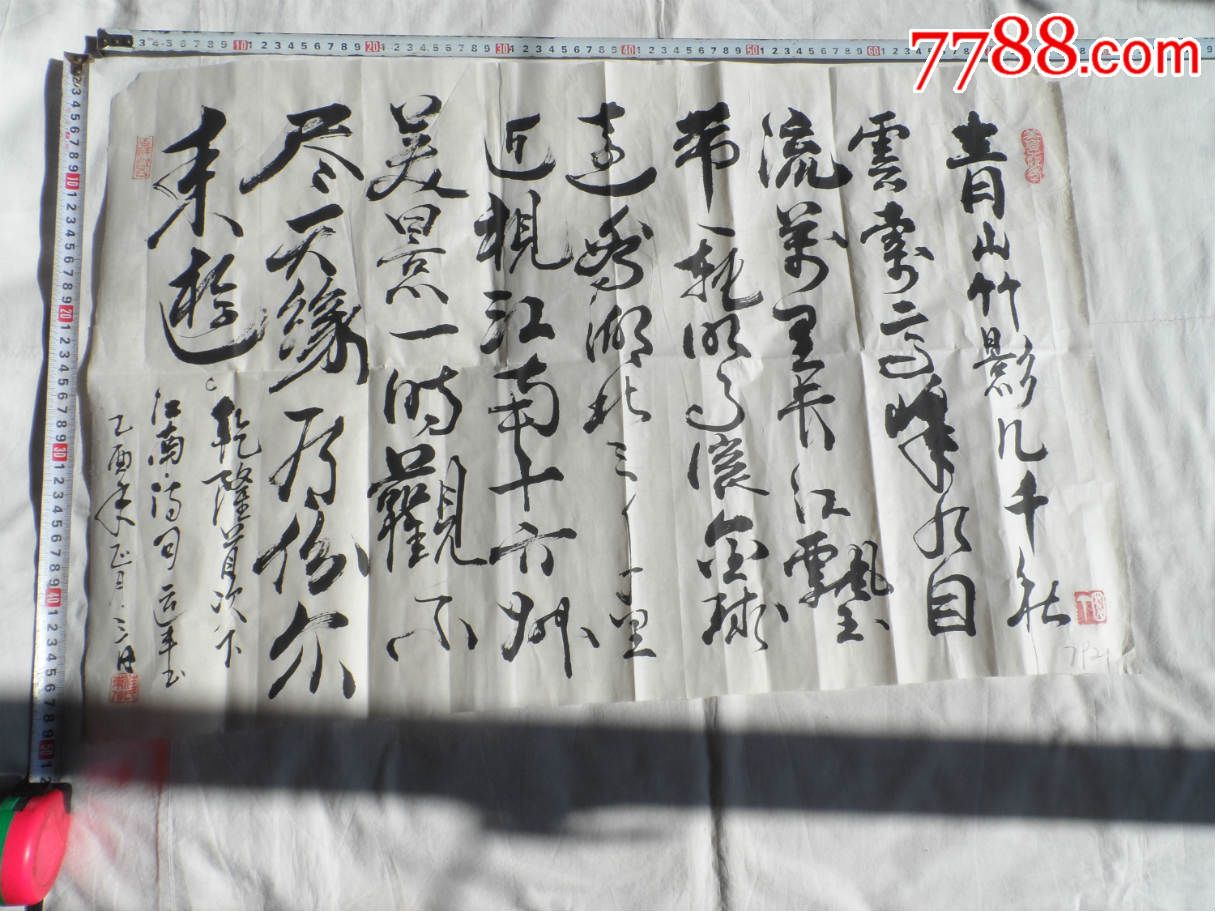 7788.com
青山竹影几千秋
雲索高峰水自
流萬里長江飄玉
帶一輪明月滾金球
遠
湖北三千里
近視江南十六州
美景一时觀不
尽天缘有份尔
来遊
乾隆首次下
江南诗句
乙酉年正月
7921